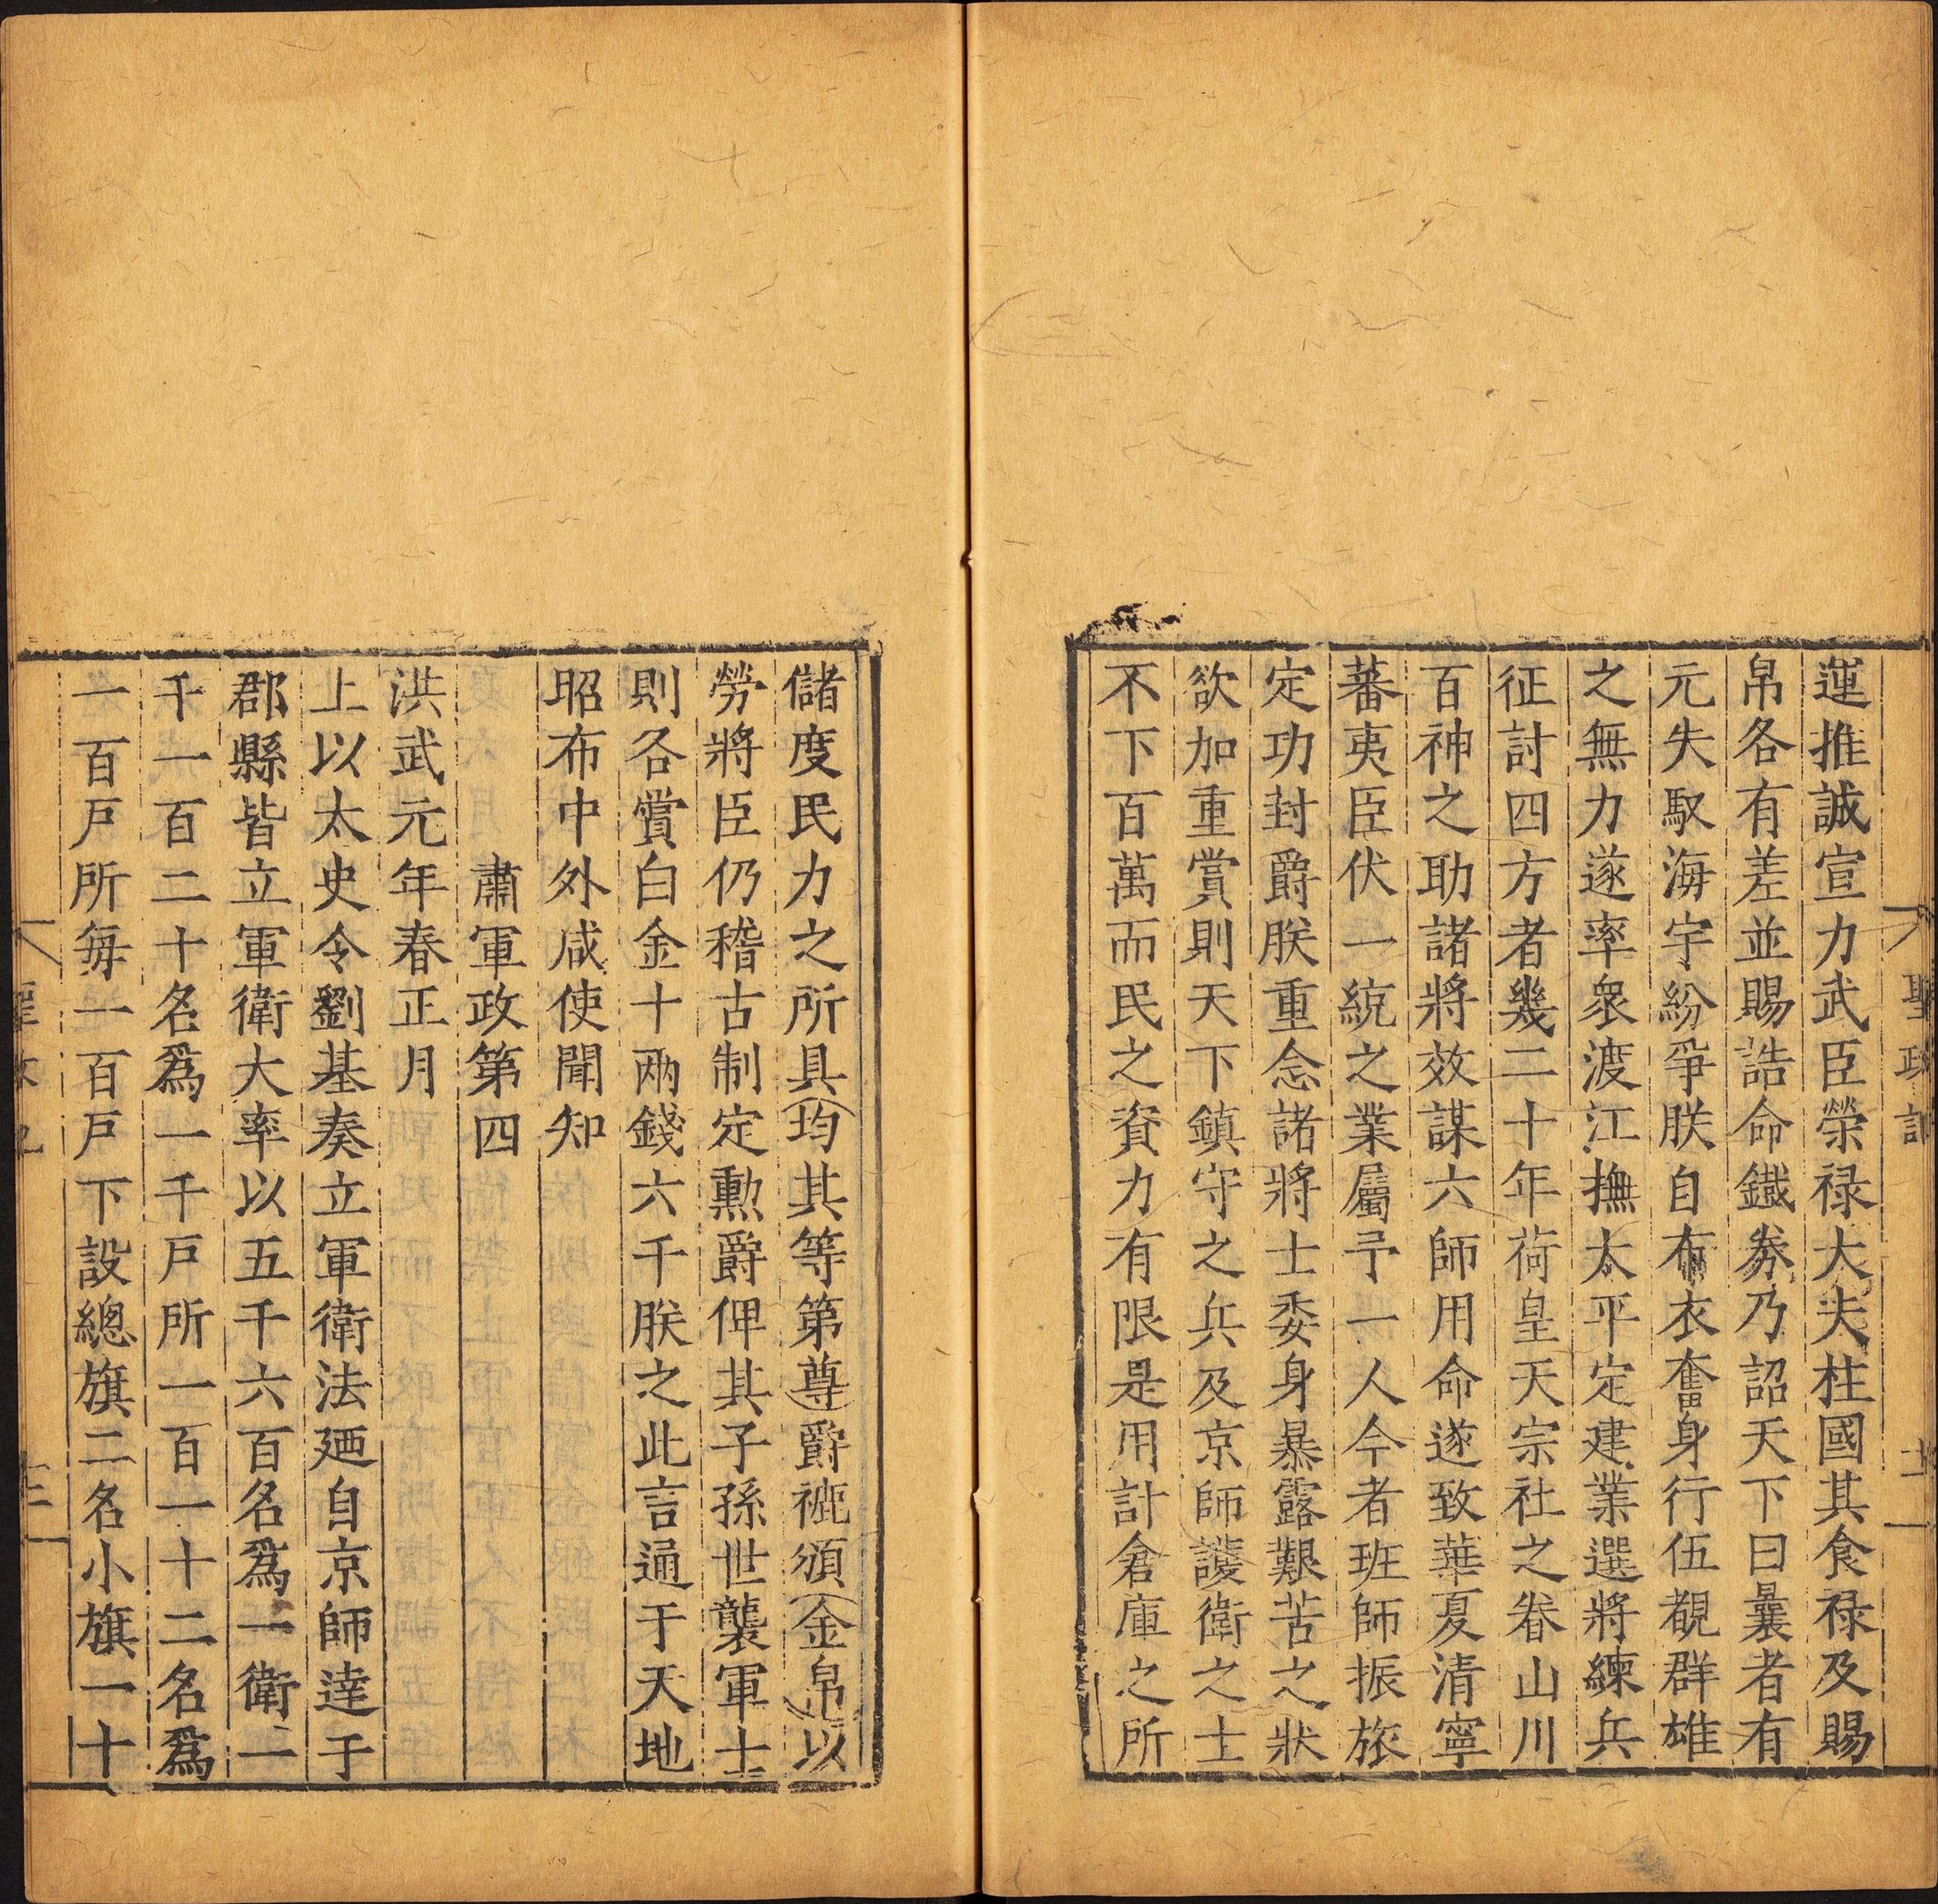 運推誠宣力武臣榮禄大夫柱國其食禄及賜
帛各有差並賜誥命鐵券乃詔天下曰曩者有
元失馭海宇紛爭朕自布衣奮身行伍覩群雄
之無力遂率衆渡江撫太平定建業選將練兵
征討四方者幾二十年荷皇天宗社之眷山川
百神之助諸將效謀六師用命遂致華夏清寧
蕃夷臣伏一統之業屬予一人今者班師振旅
定功封爵朕重念諸將士委身暴露艱苦之狀
欲加重賞則天下鎮守之兵及京師護衛之士
不下百萬而民之資力有限是用計倉庫之所
聖政記
儲度民力之所具均其等第尊爵褫頒金帛以
勞將臣仍稽古制定勲爵俾其子孫世襲軍士
則各賞白金十兩錢六千朕之此言通于天地
昭布中外咸使聞知
肅軍政第四
洪武元年春正月
上以太史令劉基奏立軍衛法廼自京師逹于
郡縣皆立軍衛大率以五千六百名爲一衛一
千一百二十名爲一千戸所一百一十二名爲
一百戸所每一百戸下設總旗二名小旗一十